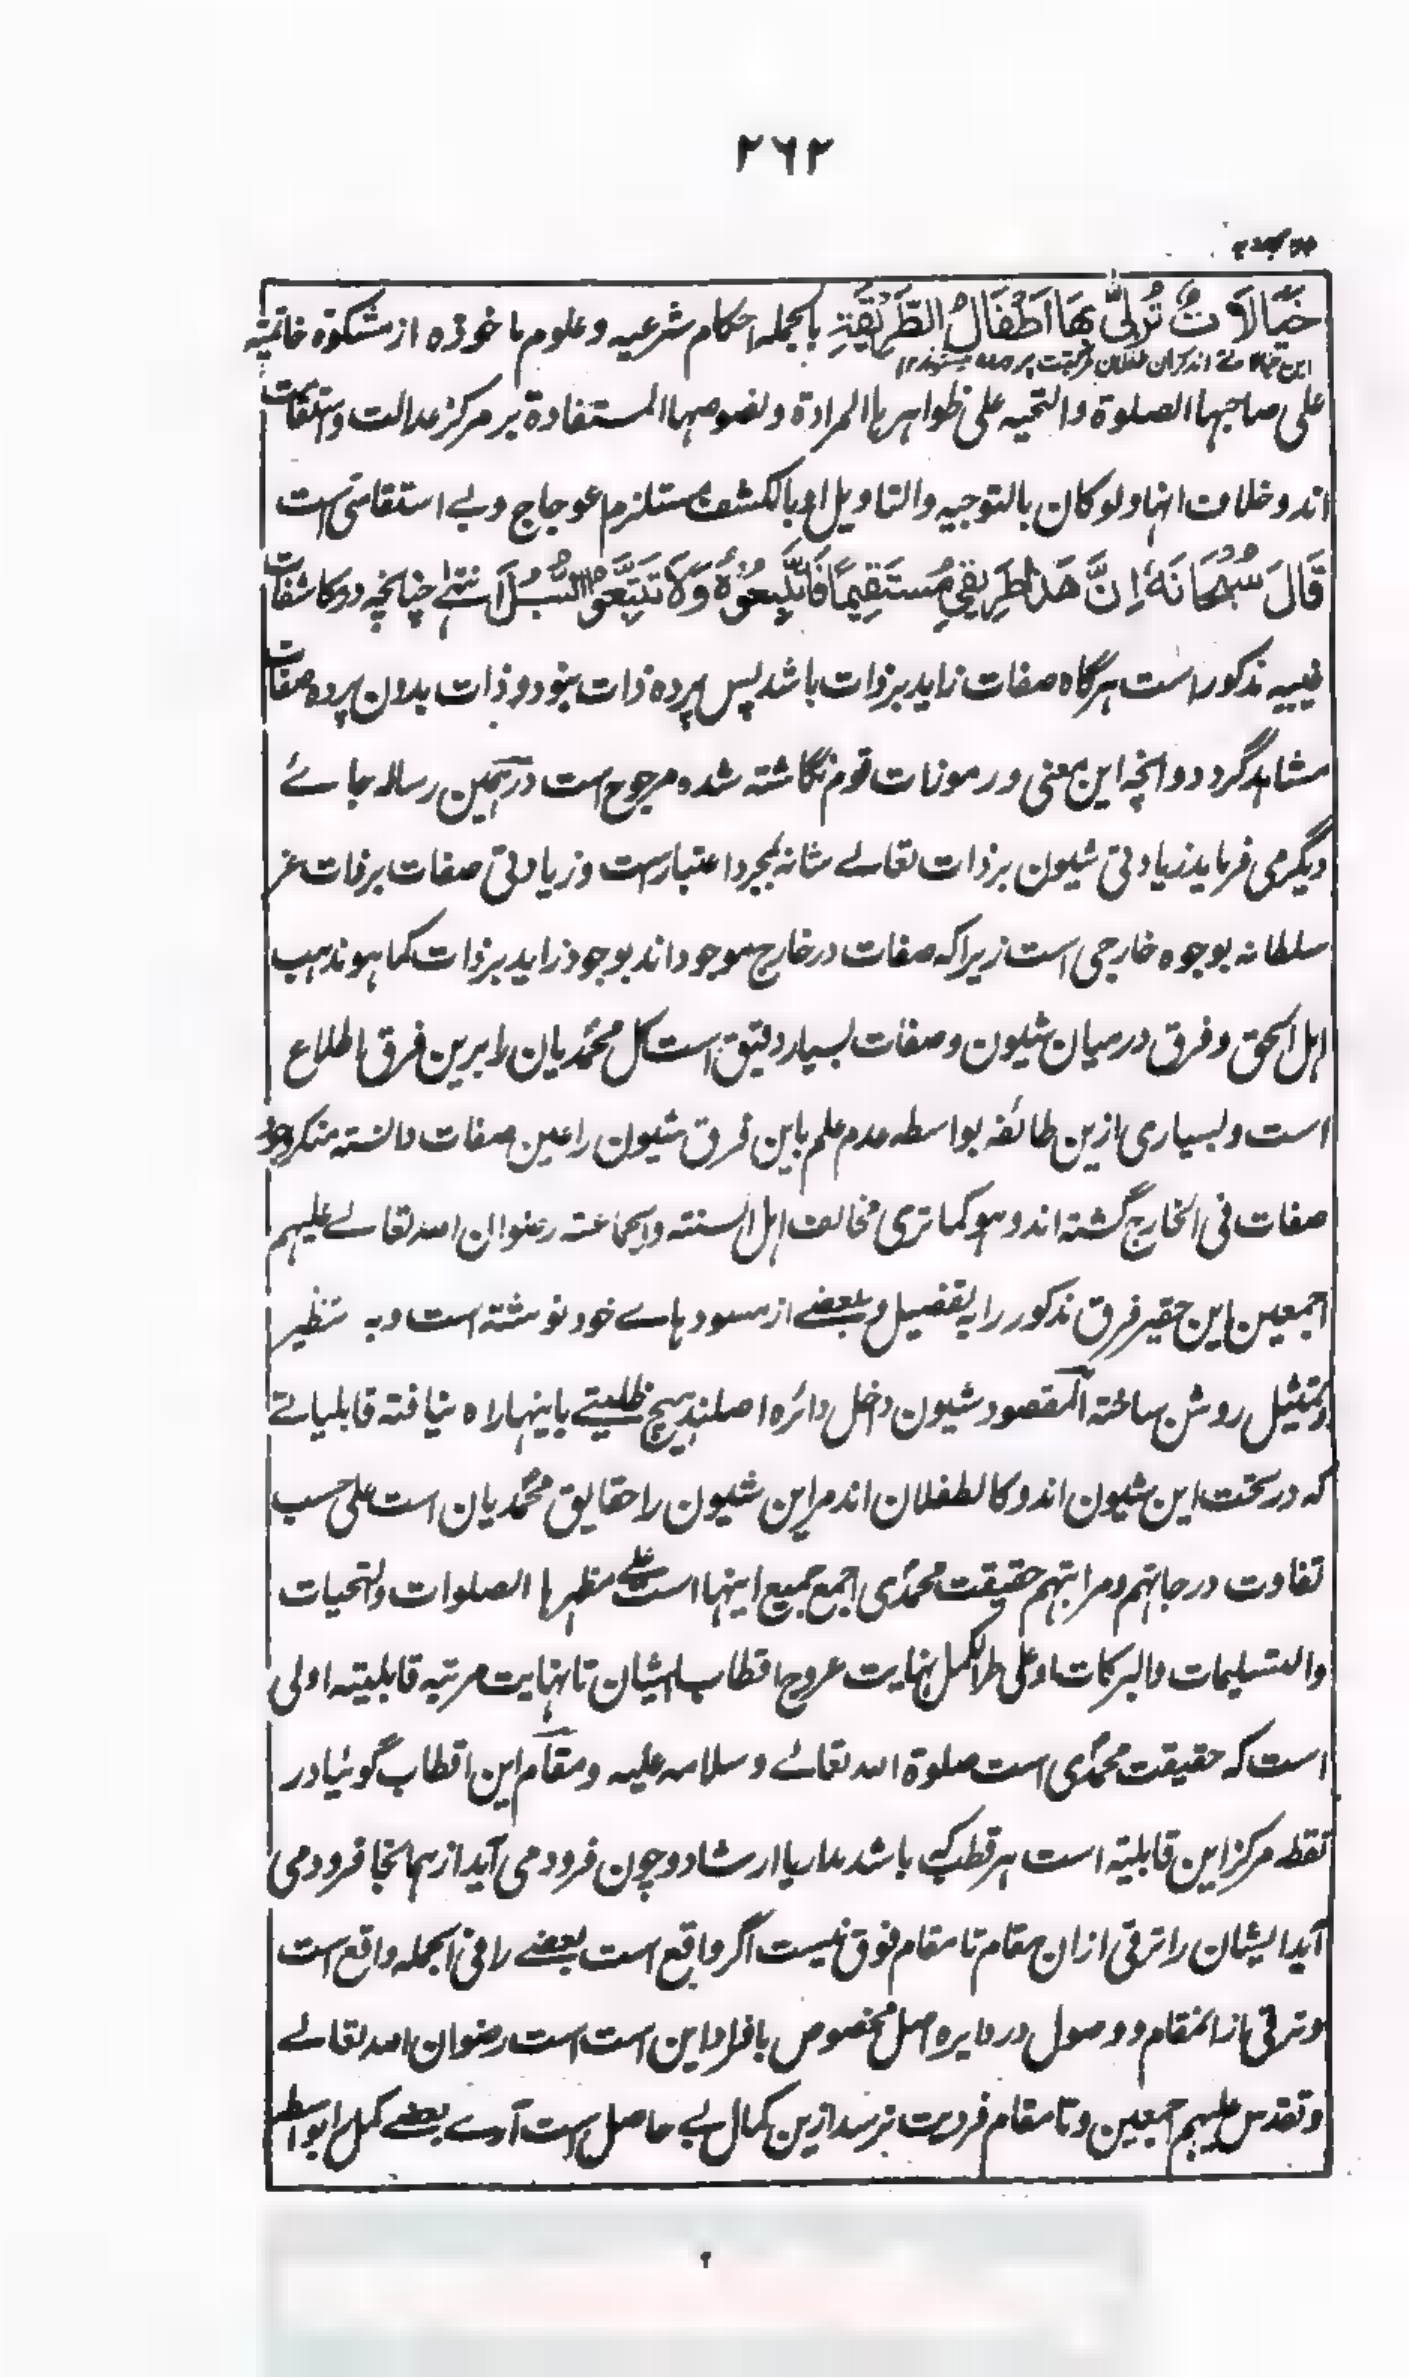 ۲۶۲
خَیَالَاتٌ تُرَبّٰی بِهَا اَطْفَالُ الطَّرِیْقَةِ بالجمله احکام شرعیه و علوم ماخوذه از مشکوة خاتمیته
این خیالاتے اند کزان طفلان طریقت پرورده میشوند
علی صاحبها الصلوة والتحیه علی ظواهرها المرادة ونصوصها المستفادة بر مرکز عدالت و استقامت
اند و خلاف انها ولو کان بالتوجیه والتاویل او بالکشف مستلزم اعوجاج و بے استقامتی است
قَالَ سُبْحَانَهٗ اِنَّ هٰذَا طَرِیْقِیْ مُسْتَقِیْمًا فَاتَّبِعُوْهُ وَلَا تَتَّبِعُوا السُّبُلَ انتهٰے چنانچه در مکاشفات
غیبیه مذکور است هرگاه صفات زاید بر ذات باشد پس پرده ذات بنود و ذات بدون پرده صفات
مشاهد گردد و انچه این معنی در رموزات قوم نگاشته شده مرجوح است در همین رساله جائے
دیگر می فرماید زیادتی شیون بر ذات تعالے شانه بمجرد اعتبار است و زیادتی صفات بر ذات عز
سلطانه بوجوه خارجی است زیرا که صفات در خارج موجود اند بوجود زاید بر ذات کما هو مذهب
اهل الحق و فرق درمیان شیون و صفات بسیار دقیق است کل محمدیان را برین فرق اطلاع
است و بسیاری ازین طائفه بواسطه عدم علم باین فرق شیون را عین صفات دانسته منکر وجود
صفات فی الخارج گشته اند و هو کما تری مخالف اهل السنته والجماعته رضوان الله تعالے علیهم
اجمعین این حقیر فرق مذکور را به تفصیل و بعضے از مسودهاے خود نوشته است و به تنظیر
و تمثیل روشن ساخته المقصود شیون داخل دائره اصلند هیچ ظلیتے باینها راه نیافته قابلیاتے
که در تحت این شیون اند و کالطفلان اند مر این شیون را حقایق محمدیان است علی حسب
تفاوت درجاتهم و مراتبهم حقیقت محمدی اجمع جمیع اینها است علے مظهرها الصلوات والتحیات
والتسلیمات والبرکات او علی طرا لکمل نهایت عروج اقطاب ایشان تا نهایت مرتبه قابلیته اولی
است که حقیقت محمدی است صلوة الله تعالے و سلامه علیه و مقام این اقطاب گوئیا در
نقطه مرکز این قابلیته است هر قطب که باشد مدار یا ارشاد و چون فرود می آید از همانجا فرود می
آید ایشان را ترقی ازان مقام تا مقام فوق نیست اگر واقع است بعضے را فی الجمله واقع است
و ترقی از انمقام و وصول در دایره اصل مخصوص بافراد این است است رضوان الله تعالے
و تقدس علیهم اجمعین و تا مقام فردیت نرسد ازین کمال بے حاصل است آرے بعضے کمل را بواسطه
۲